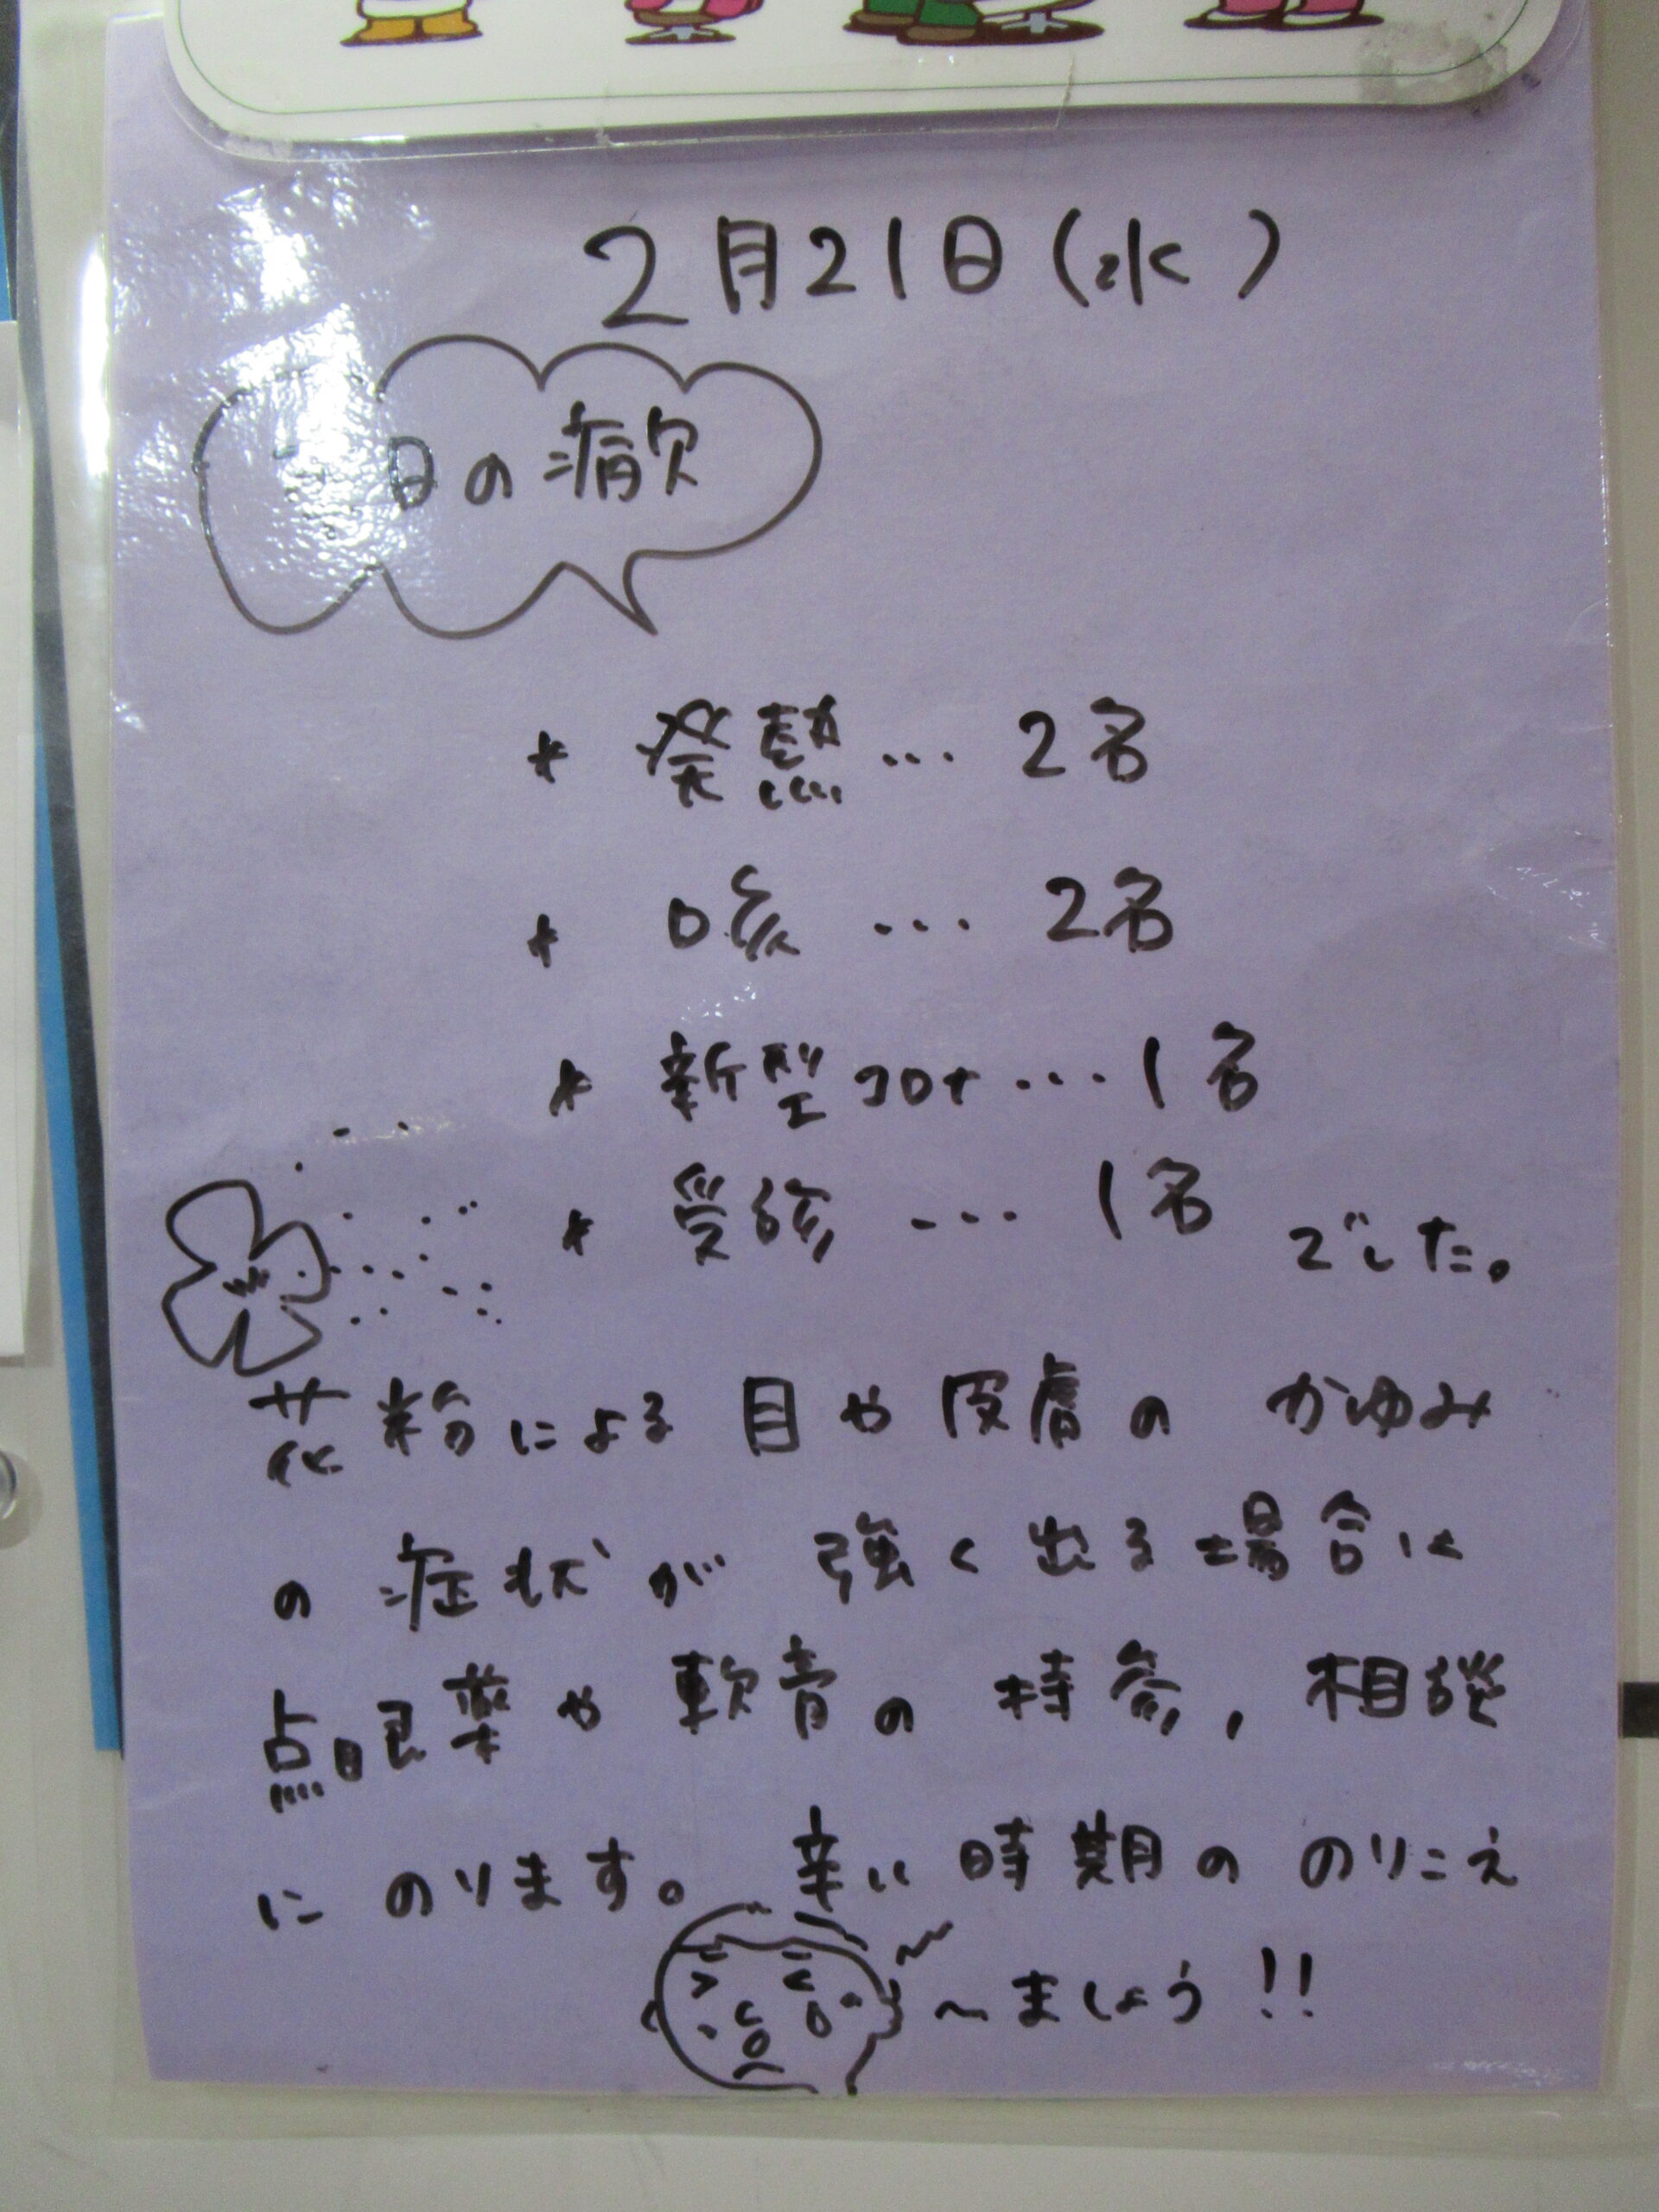 2月21日(水)
日の病欠
* 発熱… 2名
* 咳 … 2名
* 新型コロナ…1名
* 受診 … 1名 でした。
花粉による 目や皮膚の かゆみ
の 症状が 強く出る場合は
点眼薬や軟膏の持参,相談
にのります。辛い時期の のりこえ
〜ましょう!!